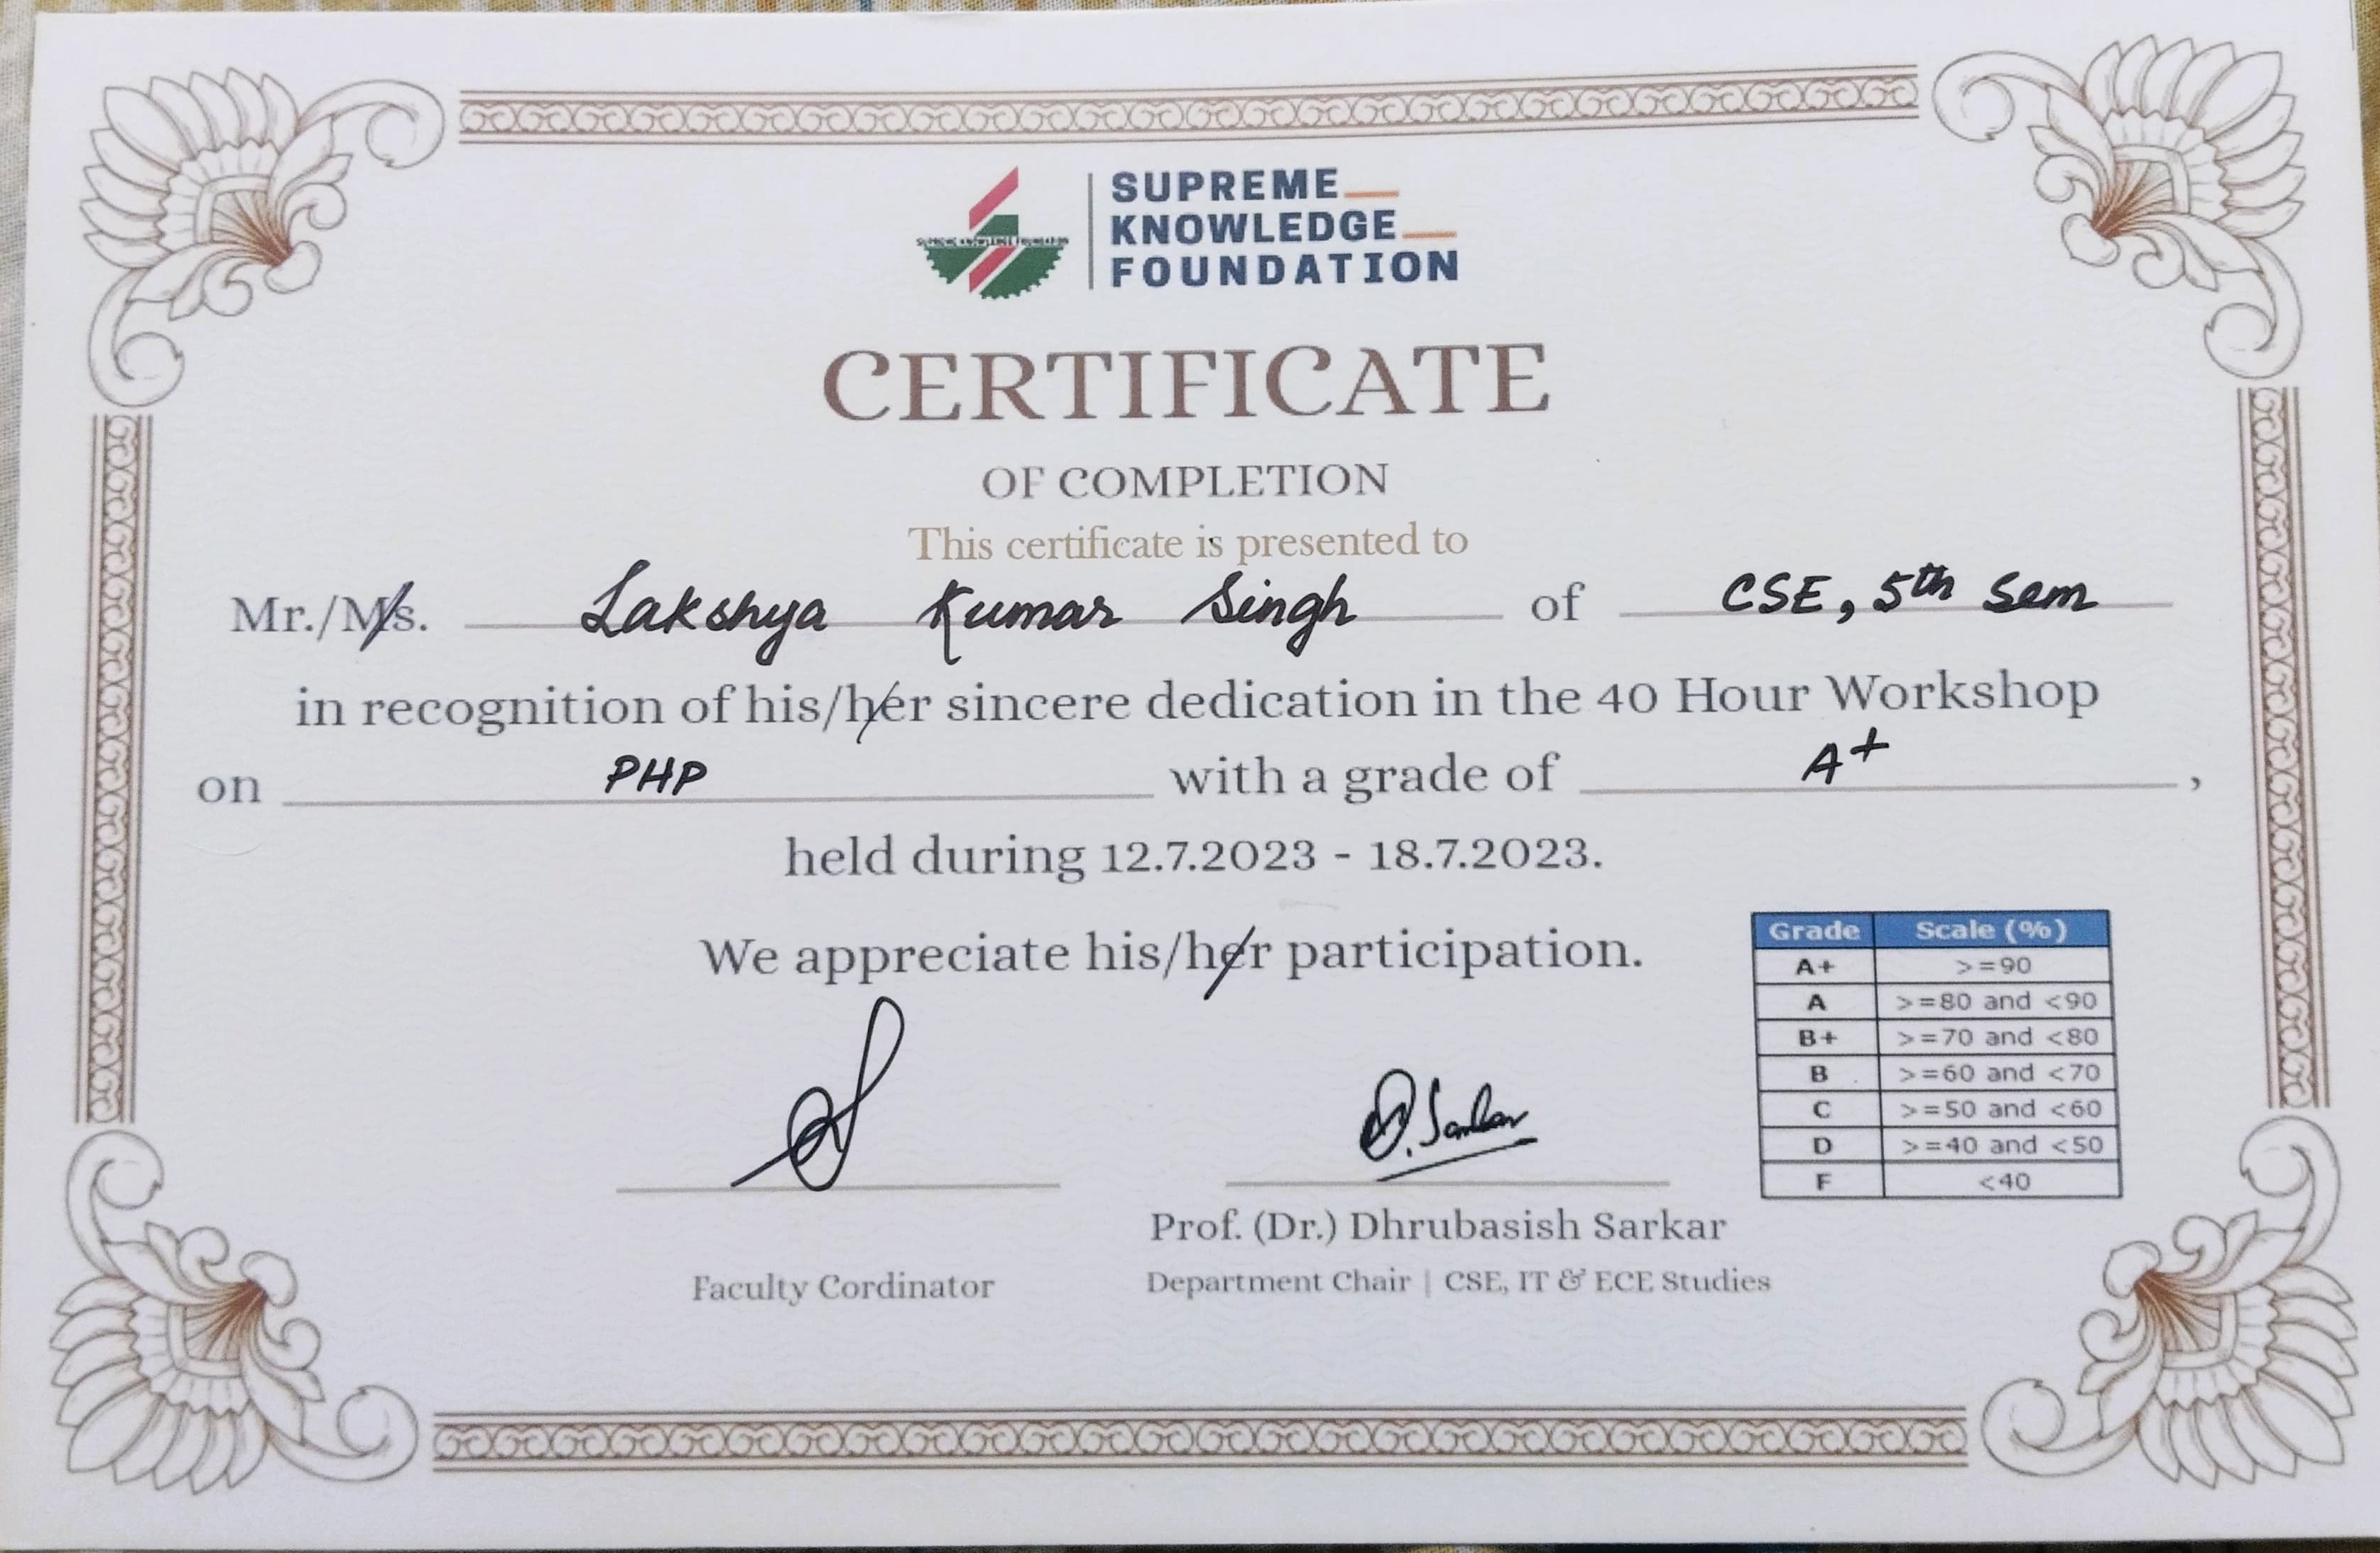 SUPREME KNOWLEDGE FOUNDATION
SUPREME
KNOWLEDGE
FOUNDATION
CERTIFICATE
OF COMPLETION
This certificate is presented to
Mr./Ms. Lakshya Kumar Singh of CSE, 5th Sem
in recognition of his/her sincere dedication in the 40 Hour Workshop
on PHP with a grade of A+ ,
held during 12.7.2023 - 18.7.2023.
We appreciate his/her participation.
Grade Scale (%)
A+ >=90
A >=80 and <90
B+ >=70 and <80
B >=60 and <70
C >=50 and <60
D >=40 and <50
F <40
D. Sarkar
Prof. (Dr.) Dhrubasish Sarkar
Faculty Cordinator
Department Chair | CSE, IT & ECE Studies